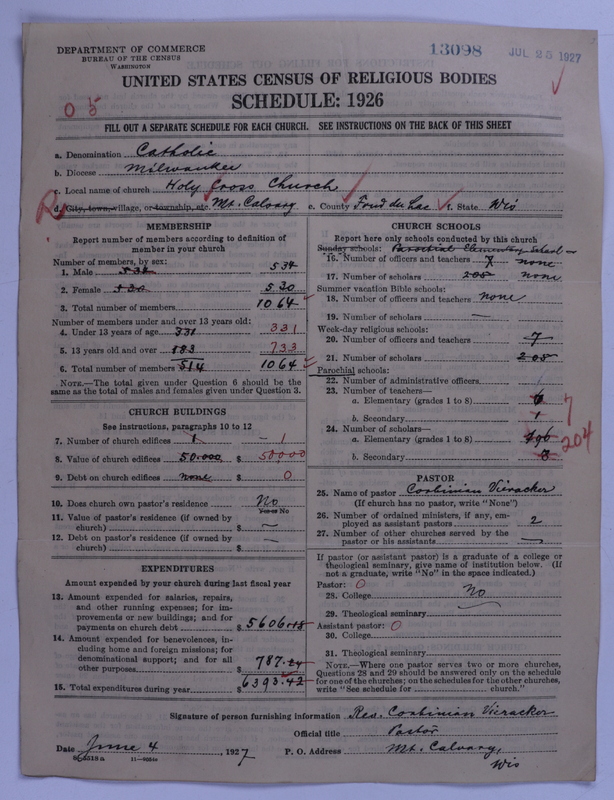 DEPARTMENT OF COMMERCE
BUREAU OF THE CENSUS
WASHINGTON
13098 JUL 25 1927
UNITED STATES CENSUS OF RELIGIOUS BODIES
SCHEDULE: 1926
0 5
FILL OUT A SEPARATE SCHEDULE FOR EACH CHURCH. SEE INSTRUCTIONS ON THE BACK OF THIS SHEET
a. Denomination Catholic
b. Diocese Milwaukee
c. Local name of church Holy Cross Church
R d. City, town, village, or township, etc. Mt. Calvary e. County Fond du Lac f. State Wis
MEMBERSHIP
Report number of members according to definition of member in your church
Number of members, by sex:
1. Male 534 534
2. Female 530 530
3. Total number of members 1064
Number of members under and over 13 years old:
4. Under 13 years of age 331 331
5. 13 years old and over 183 733
6. Total number of members 514 1064
NOTE.—The total given under Question 6 should be the same as the total of males and females given under Question 3.
CHURCH BUILDINGS
See instructions, paragraphs 10 to 12
7. Number of church edifices 1 1
8. Value of church edifices 50.000 $ 50,000
9. Debt on church edifices none $ 0
10. Does church own pastor's residence No
Yes or No
11. Value of pastor's residence (if owned by church) $ —
12. Debt on pastor's residence (if owned by church) $ —
EXPENDITURES
Amount expended by your church during last fiscal year
13. Amount expended for salaries, repairs, and other running expenses; for improvements or new buildings; and for payments on church debt $ 5606.18
14. Amount expended for benevolences, including home and foreign missions; for denominational support; and for all other purposes $ 787.24
15. Total expenditures during year $ 6393.42
CHURCH SCHOOLS
Report here only schools conducted by this church
Sunday schools: Parochial Elementary School
16. Number of officers and teachers 7 none
17. Number of scholars 205 none
Summer vacation Bible schools:
18. Number of officers and teachers none
19. Number of scholars —
Week-day religious schools:
20. Number of officers and teachers 7
21. Number of scholars 205
Parochial schools:
22. Number of administrative officers
23. Number of teachers—
a. Elementary (grades 1 to 8) 6 7
b. Secondary 1
24. Number of scholars—
a. Elementary (grades 1 to 8) 196 204
b. Secondary 8
PASTOR
25. Name of pastor Corbinian Vieracker
(If church has no pastor, write "None")
26. Number of ordained ministers, if any, employed as assistant pastors 2
27. Number of other churches served by the pastor or his assistants —
If pastor (or assistant pastor) is a graduate of a college or theological seminary, give name of institution below. (If not a graduate, write "No" in the space indicated.)
Pastor: 0
28. College No
29. Theological seminary
Assistant pastor: 0
30. College
31. Theological seminary
NOTE.—Where one pastor serves two or more churches, Questions 28 and 29 should be answered only on the schedule for one of the churches; on the schedules for the other churches, write "See schedule for church."
Signature of person furnishing information Rev. Corbinian Vieracker
Official title Pastor
Date June 4, 1927 P. O. Address Mt. Calvary,
Wis
11—9054a